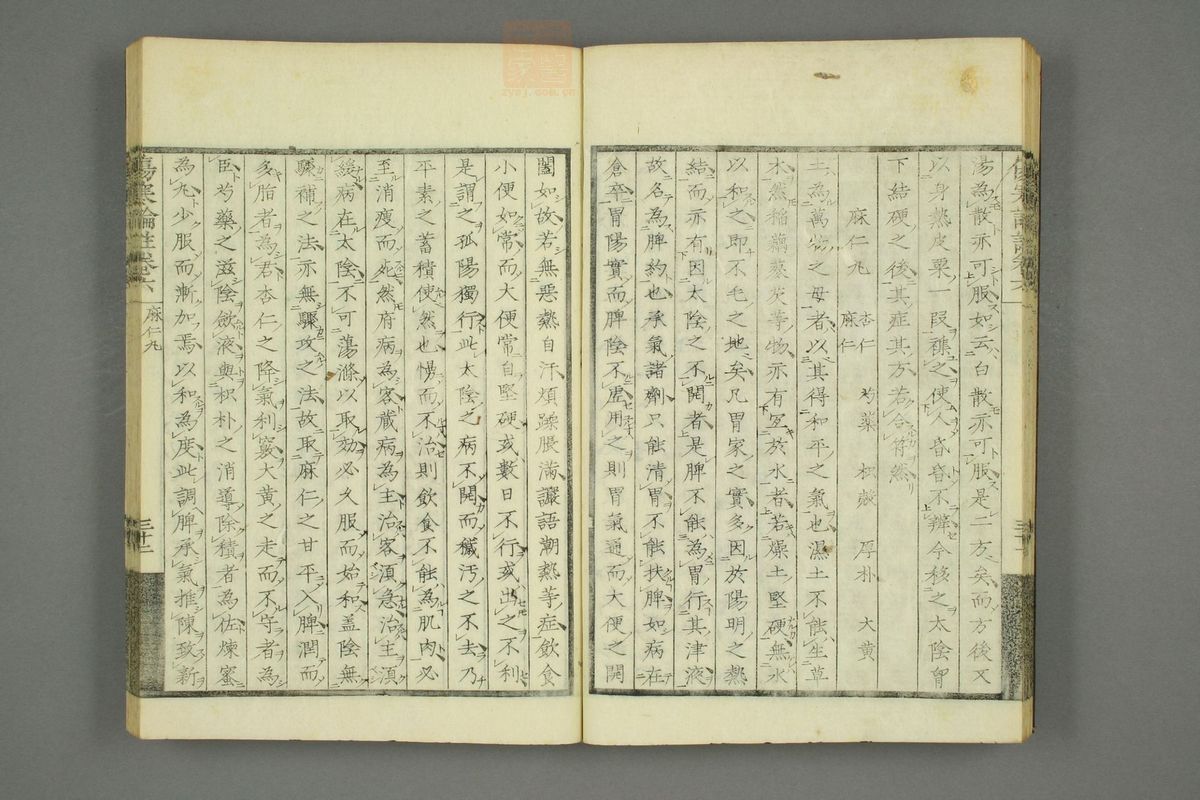 湯為散亦可服如云白散亦可服是二方矣而方後又
以身熱皮粟一段雜之使人昏昏不辨今移之太陰胷
下結硬之後其症其方若合符然
麻仁丸
杏仁 芍藥 枳殻 厚朴 大黄
麻仁
土為萬物之母者以其得和平之氣也濕土不能生草
木然稲藕菱芡等物亦有宜於水者若燥土堅硬無水
以和之即不毛之地矣凡胃家之實多因於陽明之熱
結而亦有因太陰之不開者是脾不能為胃行其津液
故名為脾約也承氣諸劑只能清胃不能扶脾如病在
倉卒胃陽實而脾陰不虚用之則胃氣通而大便之開
闔如故若無惡熱自汗煩躁脹満讝語潮熱等症飲食
小便如常而大便常自堅硬或數日不行或出之不利
是謂之孤陽獨行此太陰之病不開而穢汚之不去乃
平素之蓄積使然也慢而不治則飲食不能為肌肉必
至消瘦而死然府病為客蔵病為主治客須急治主須
緩病在太陰不可蕩滌以取効必久服而始和盖陰無
驟補之法亦無驟攻之法故取麻仁之甘平入脾潤而
多脂者為君杏仁之降氣利竅大黄之走而不守者為
臣芍藥之滋陰斂液與枳朴之消導除積者為佐煉蜜
為丸少服而漸加焉以和為度此調脾承氣推陳致新
傷寒論註卷六
麻仁丸
三十二
zysj.com.cn